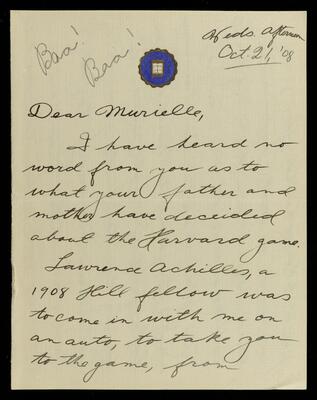 Baa!
Baa!
Weds. Afternoon
Oct. 21, '08
Dear Murielle,
I have heard no
word from you as to
what your father and
mother have decided
about the Harvard game.
Lawrence Achilles, a
1908 Hill fellow was
to come in with me on
an auto, to take you
to the game, from